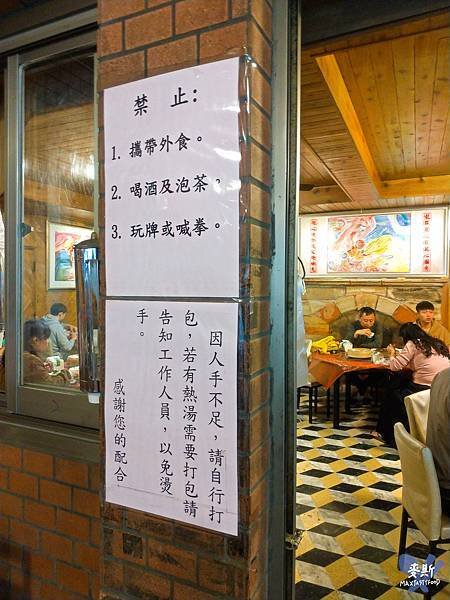 禁 止:
1. 攜帶外食。
2. 喝酒及泡茶。
3. 玩牌或喊拳。
因人手不足，請自行打
包，若有熱湯需要打包請
告知工作人員，以免燙
手。
感謝您的配合
麥斯
MAXTASTYFOOD